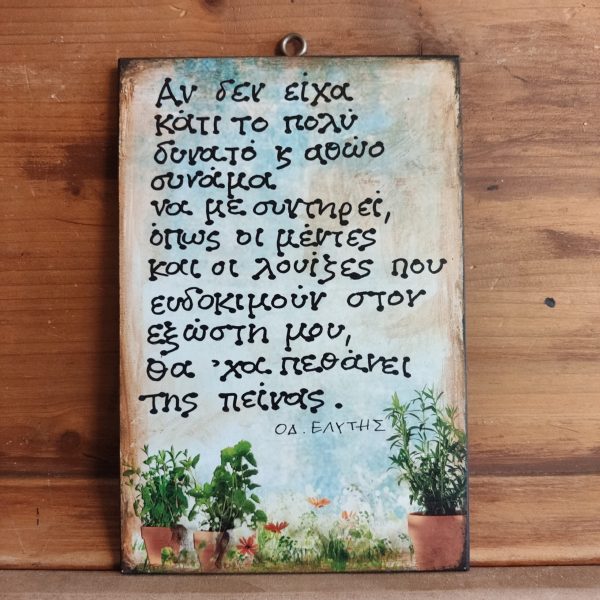 Αν δεν είχα
κάτι το πολύ
δυνατό ϗ αθώο
συνάμα
να με συντηρεί,
όπως οι μέντες
και οι λουίζες που
ευδοκιμούν στον
εξώστη μου,
θα 'χα πεθάνει
της πείνας.
ΟΔ. ΕΛΥΤΗΣ